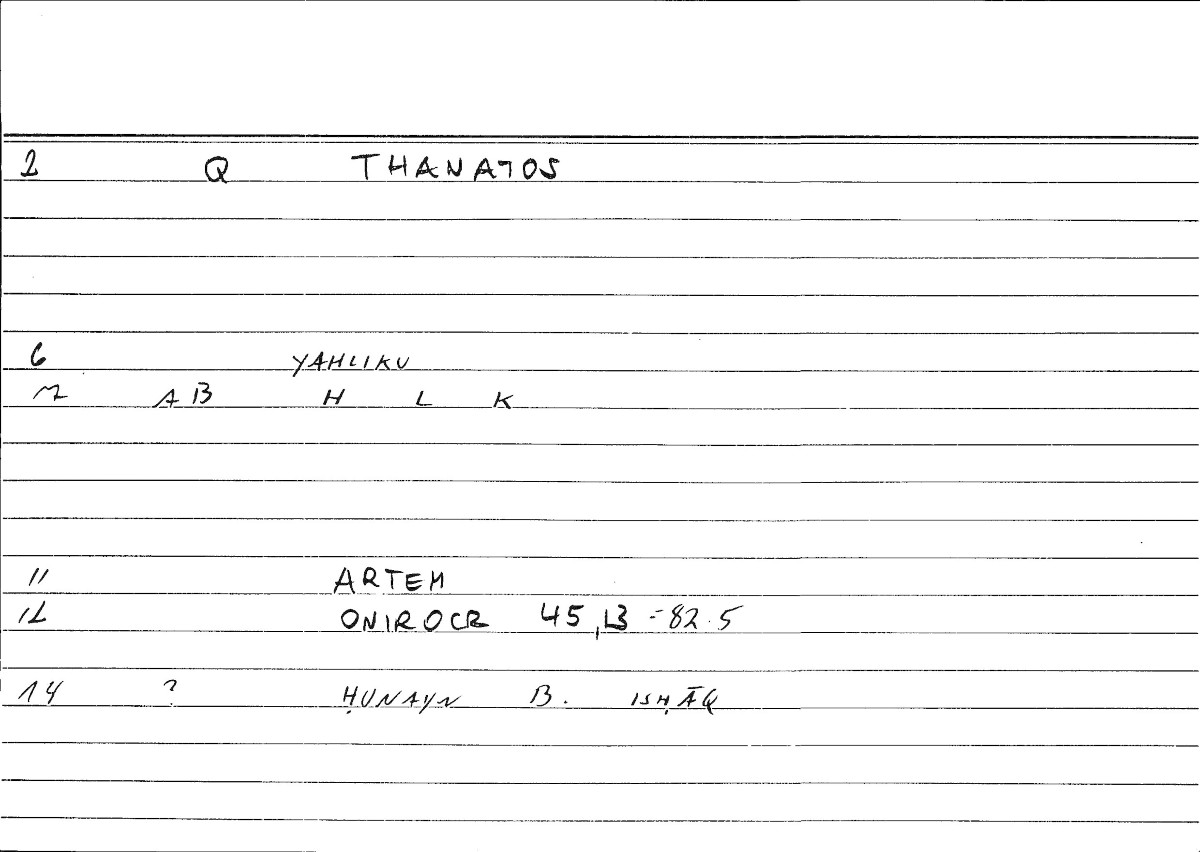 2 Q THANATOS
6 YAHLIKU
7 AB H L K
11 ARTEM
12 ONIROCR 45,13 = 82.5
14 ? ḤUNAYN B. ISḤĀQ